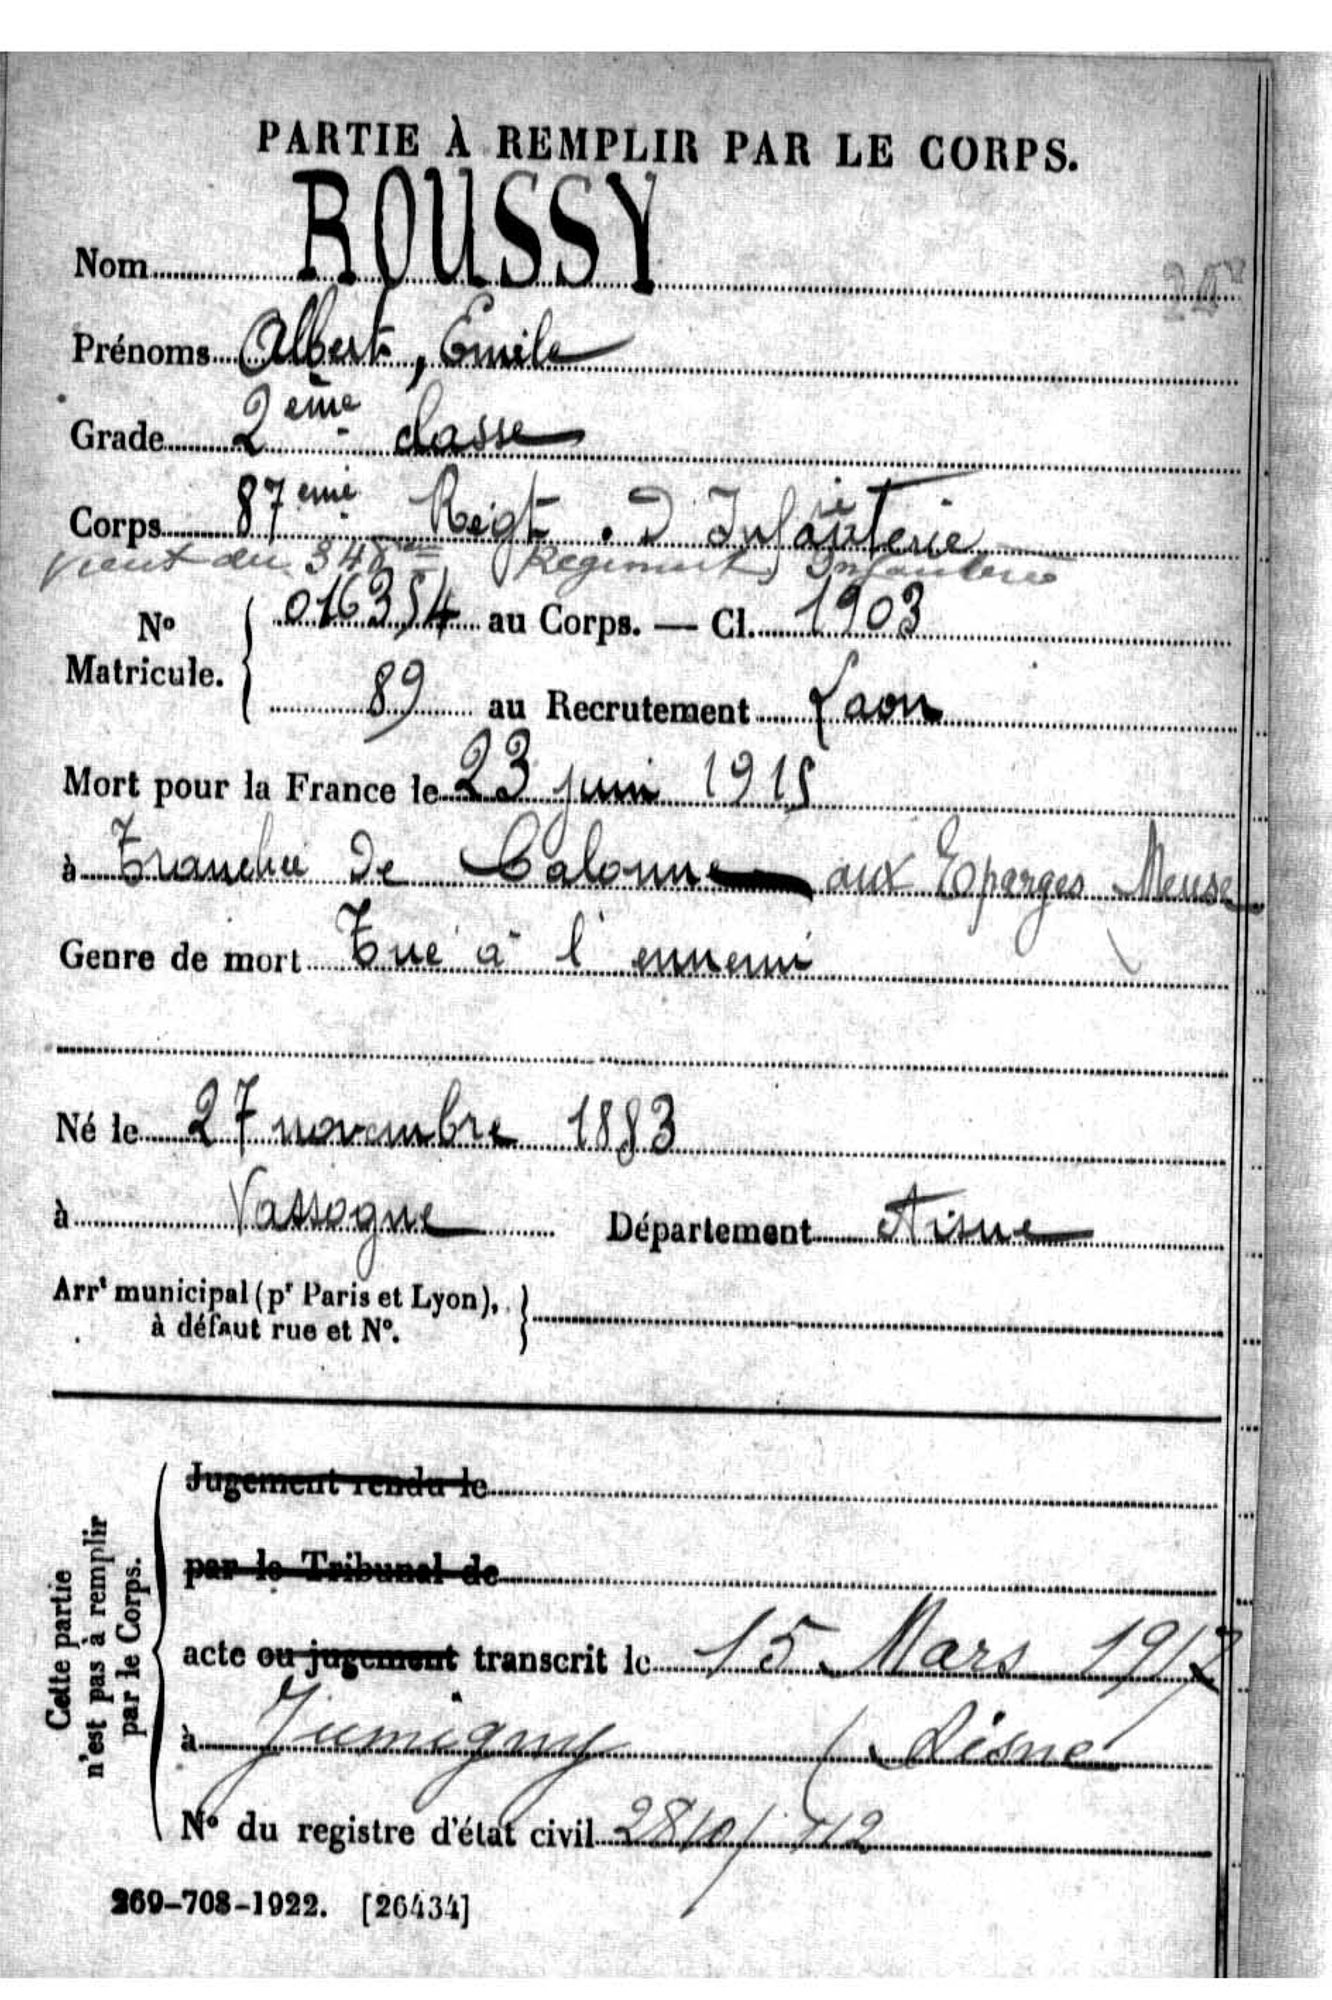 PARTIE À REMPLIR PAR LE CORPS.
Nom ROUSSY
Prénoms Albert, Emile
Grade 2ème classe
Corps 87ème Régt. d'Infanterie
vient du 348ème Régiment Infanterie
Nº Matricule. 016354 au Corps. — Cl. 1903
89 au Recrutement Laon
Mort pour la France le 23 juin 1915
à Tranchée de Calonne aux Eparges Meuse
Genre de mort Tué à l'ennemi
Né le 27 novembre 1883
à Vassogne Département Aisne
Arrt municipal (pr Paris et Lyon),
à défaut rue et Nº.
Cette partie
n'est pas à remplir
par le Corps.
Jugement rendu le
par le Tribunal de
acte ou jugement transcrit le 15 Mars 1917
à Jumigny (Aisne
Nº du registre d'état civil
269-708-1922. [26434]